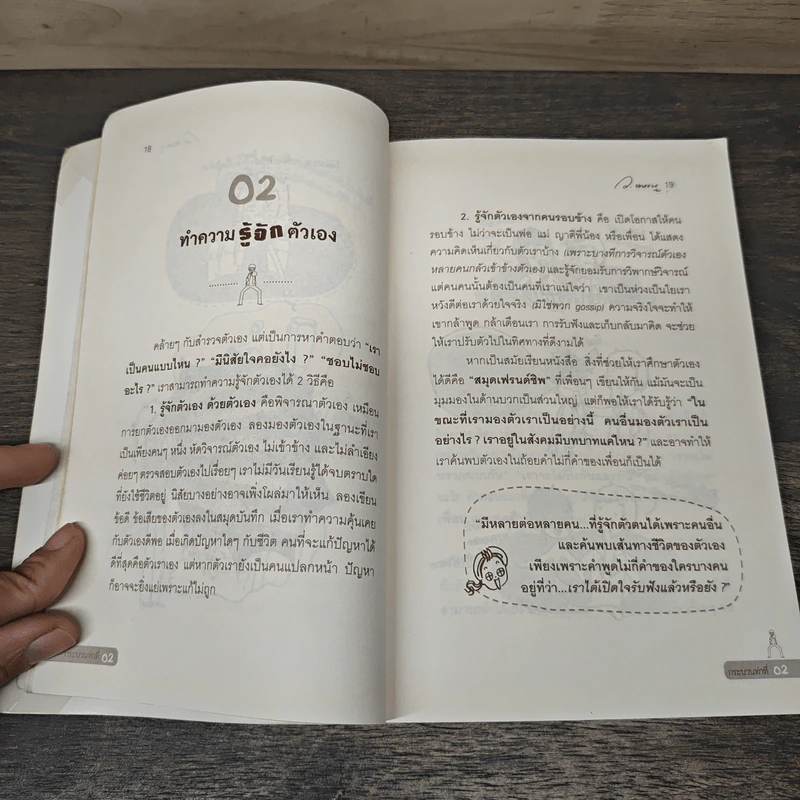 18
02
ทำความ รู้จัก ตัวเอง
คล้ายๆ กับสำรวจตัวเอง แต่เป็นการหาคำตอบว่า "เรา
เป็นคนแบบไหน ?" "มีนิสัยใจคอยังไง ?" "ชอบไม่ชอบ
อะไร ?" เราสามารถทำความรู้จักตัวเองได้ 2 วิธีคือ
1. รู้จักตัวเอง ด้วยตัวเอง คือพิจารณาตัวเอง เหมือน
การยกตัวเองออกมามองตัวเอง ลองมองตัวเองในฐานะที่เรา
เป็นเพียงคนๆ หนึ่ง หัดวิจารณ์ตัวเอง ไม่เข้าข้าง และไม่ลำเอียง
ค่อยๆ ตรวจสอบตัวเองไปเรื่อยๆ เราไม่มีวันเรียนรู้ได้จบตราบใด
ที่ยังใช้ชีวิตอยู่ นิสัยบางอย่างอาจเพิ่งโผล่มาให้เห็น ลองเขียน
ข้อดี ข้อเสียของตัวเองลงในสมุดบันทึก เมื่อเราทำความคุ้นเคย
กับตัวเองดีพอ เมื่อเกิดปัญหาใดๆ กับชีวิต คนที่จะแก้ปัญหาได้
ดีที่สุดคือตัวเราเอง แต่หากตัวเรายังเป็นคนแปลกหน้า ปัญหา
ก็อาจจะยิ่งแย่เพราะแก้ไม่ถูก
กระบวนท่าที่ 02
ว.แหวน 19
2. รู้จักตัวเองจากคนรอบข้าง คือ เปิดโอกาสให้คน
รอบข้าง ไม่ว่าจะเป็นพ่อ แม่ ญาติพี่น้อง หรือเพื่อน ได้แสดง
ความคิดเห็นเกี่ยวกับตัวเราบ้าง (เพราะบางทีการวิจารณ์ตัวเอง
หลายคนกลัวเข้าข้างตัวเอง) และรู้จักยอมรับการวิพากษ์วิจารณ์
แต่คนคนนั้นต้องเป็นคนที่เราแน่ใจว่า เขาเป็นห่วงเป็นใยเรา
หวังดีต่อเราด้วยใจจริง (มิใช่พวก gossip) ความจริงใจจะทำให้
เขากล้าพูด กล้าเตือนเรา การรับฟังและเก็บกลับมาคิด จะช่วย
ให้เราปรับตัวไปในทิศทางที่ดีงามได้
หากเป็นสมัยเรียนหนังสือ สิ่งที่ช่วยให้เราศึกษาตัวเอง
ได้ดีคือ "สมุดเฟรนด์ชิพ" ที่เพื่อนๆ เขียนให้กัน แม้มันจะเป็น
มุมมองในด้านบวกเป็นส่วนใหญ่ แต่ก็พอให้เราได้รับรู้ว่า "ใน
ขณะที่เรามองตัวเราเป็นอย่างนี้ คนอื่นมองตัวเราเป็น
อย่างไร ? เราอยู่ในสังคมมีบทบาทแค่ไหน ?" และอาจทำให้
เราค้นพบตัวเองในถ้อยคำไม่กี่คำของเพื่อนก็เป็นได้
"มีหลายต่อหลายคน...ที่รู้จักตัวตนได้เพราะคนอื่น
และค้นพบเส้นทางชีวิตของตัวเอง
เพียงเพราะคำพูดไม่กี่คำของใครบางคน
อยู่ที่ว่า...เราได้เปิดใจรับฟังแล้วหรือยัง ?"
กระบวนท่าที่ 02